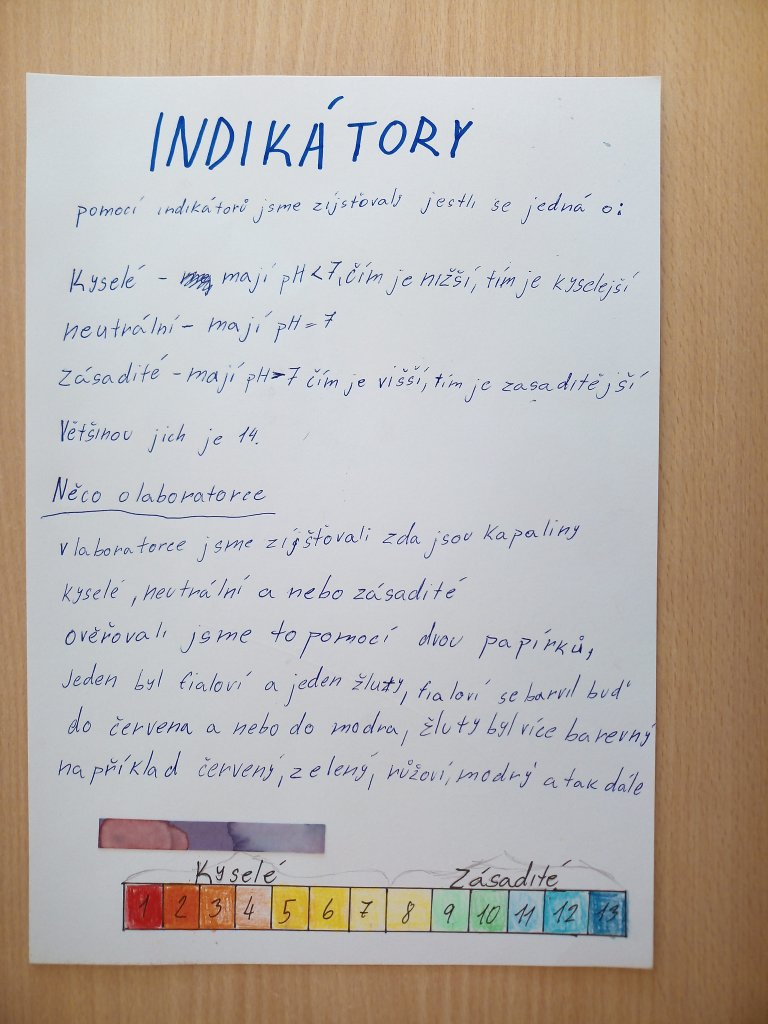 INDIKÁTORY
pomocí indikátorů jsme zijsťovali jestli se jedná o:
Kyselé - mají pH < 7, čím je nižší, tím je kyselejší
neutrální - mají pH = 7
Zásadité - mají pH > 7 čím je višší, tím je zasaditější
Většinou jich je 14.
Něco o laboratorce
v laboratorce jsme zijšťovali zda jsou kapaliny
kyselé, neutrální a nebo zásadité
ověřovali jsme to pomocí dvou papírků,
Jeden byl fialoví a jeden žlutý, fialoví se barvil buď
do červena a nebo do modra, žlutý byl více barevný
například červený, zelený, růžoví, modrý a tak dále
Kyselé Zásadité
1 2 3 4 5 6 7 8 9 10 11 12 13